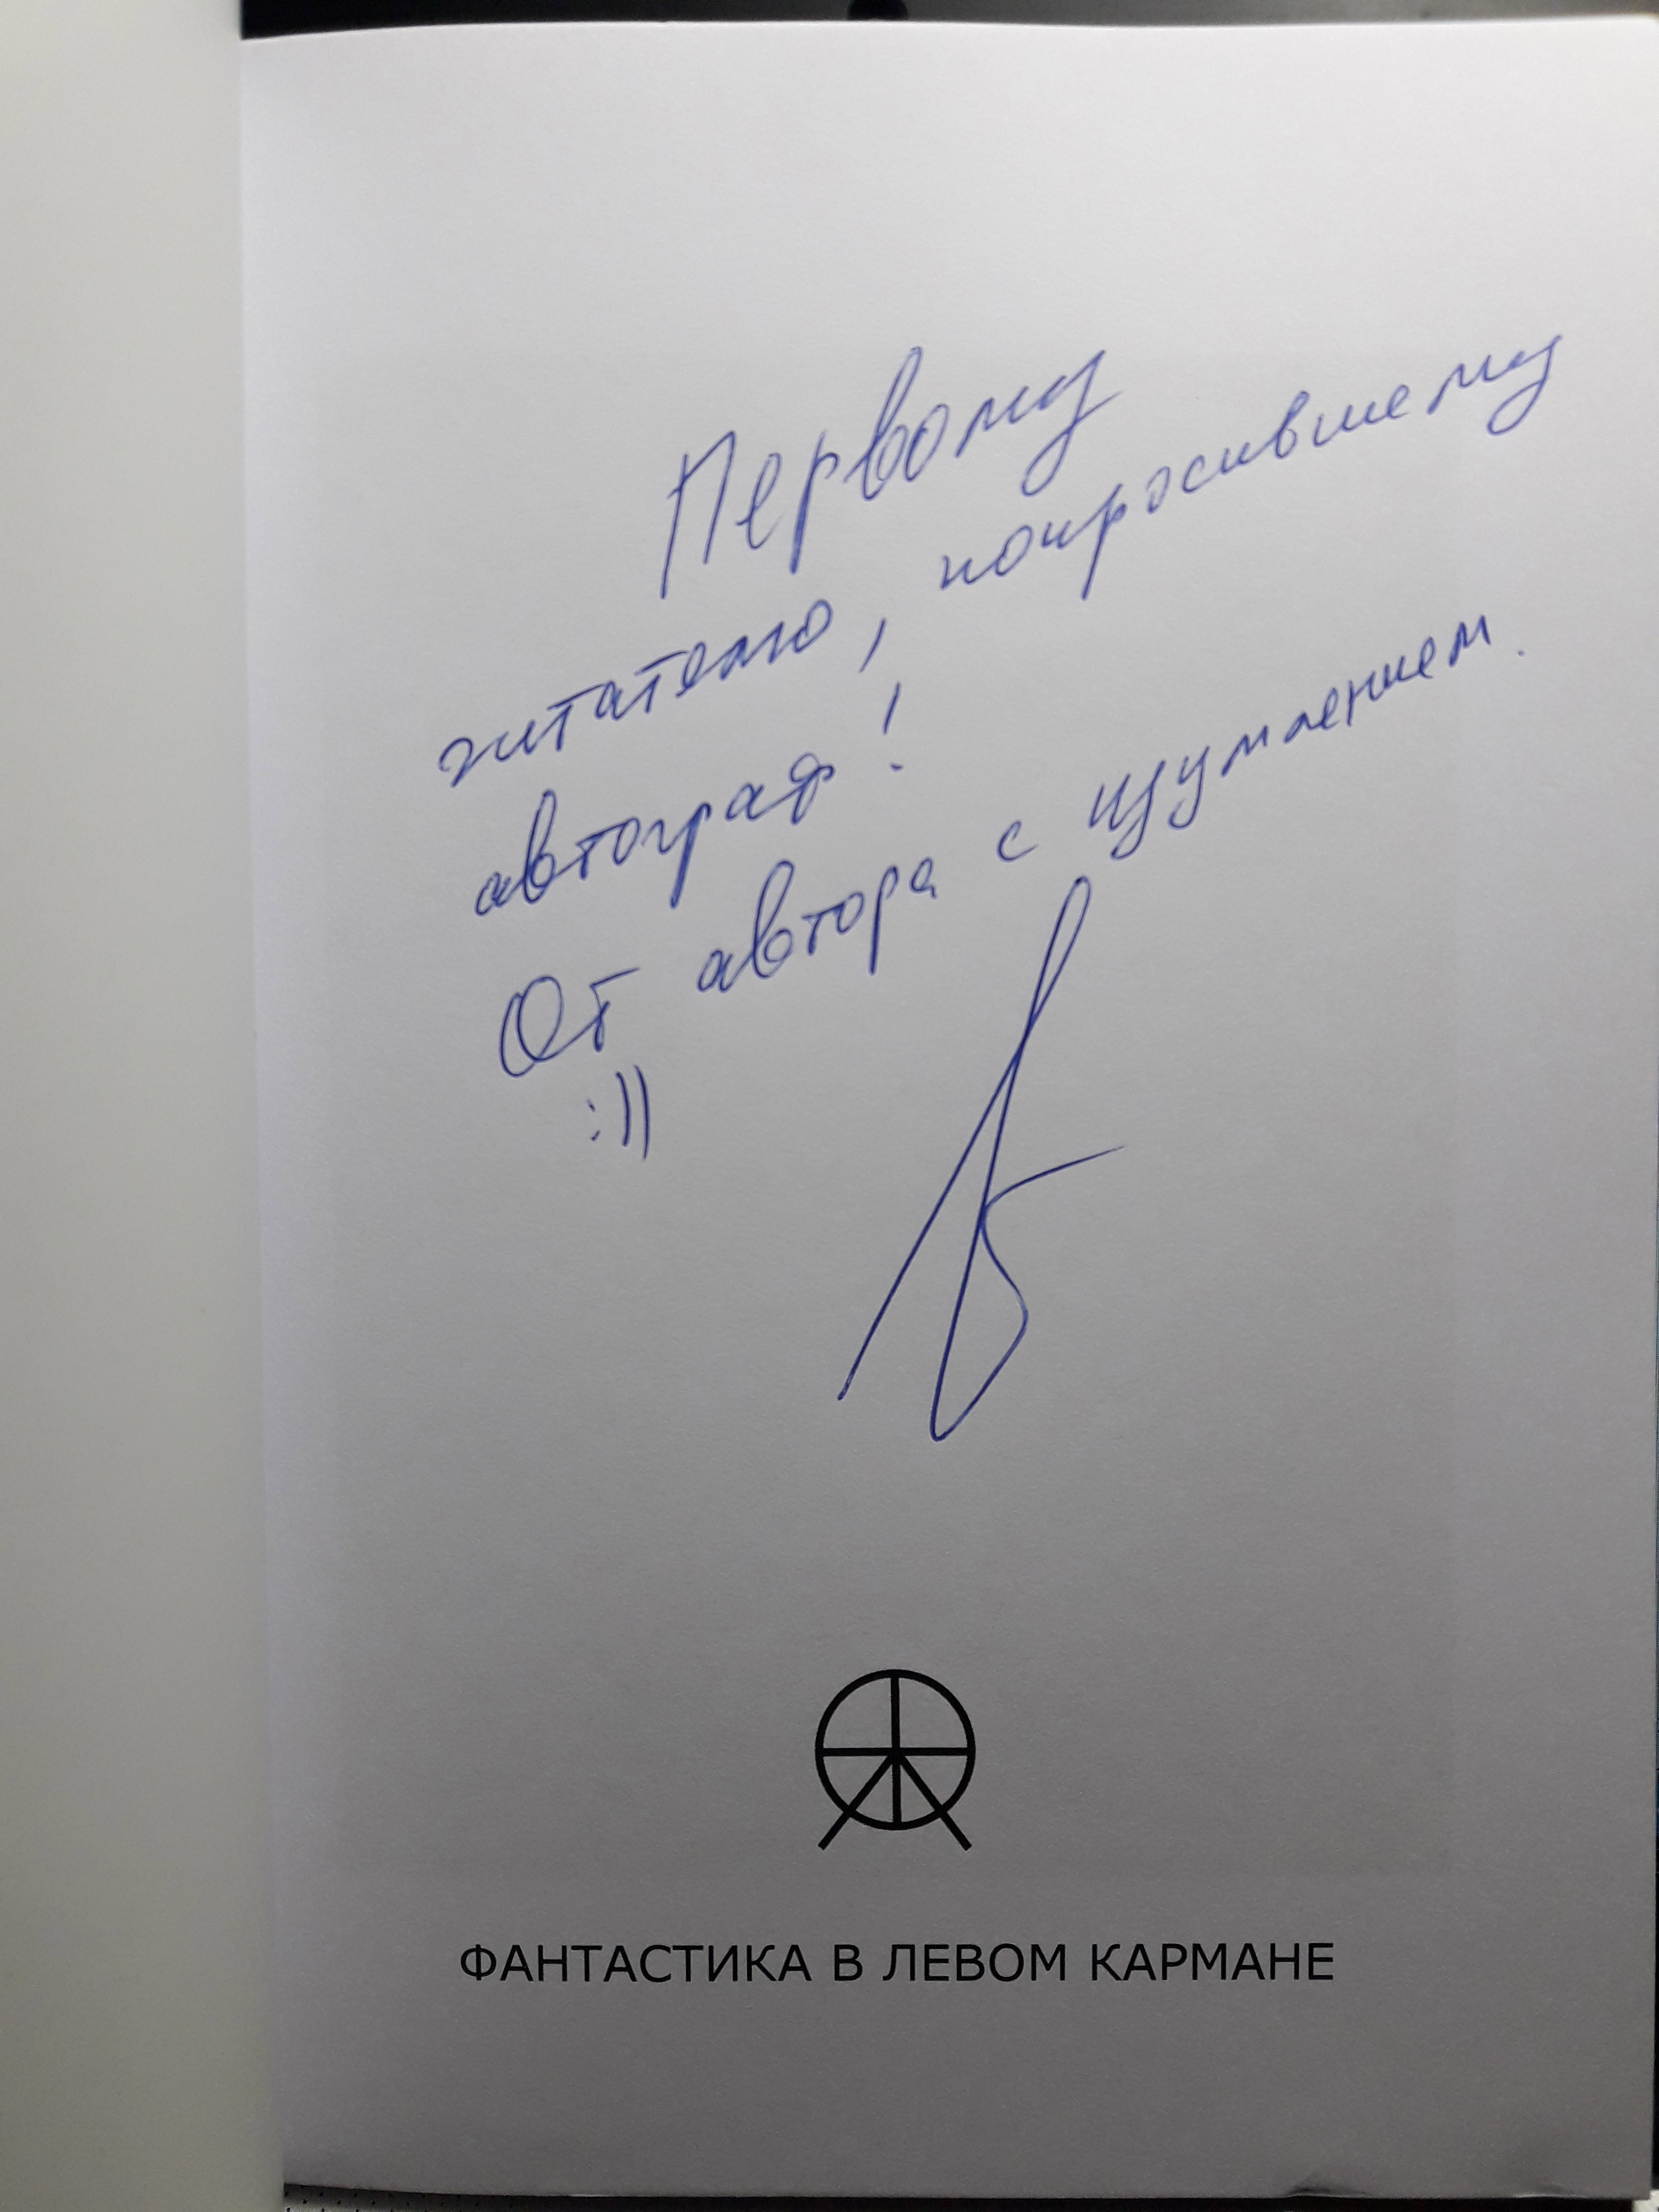 Первому
читателю, попросившему
автограф!
От автора с изумлением.
:))
ФАНТАСТИКА В ЛЕВОМ КАРМАНЕ